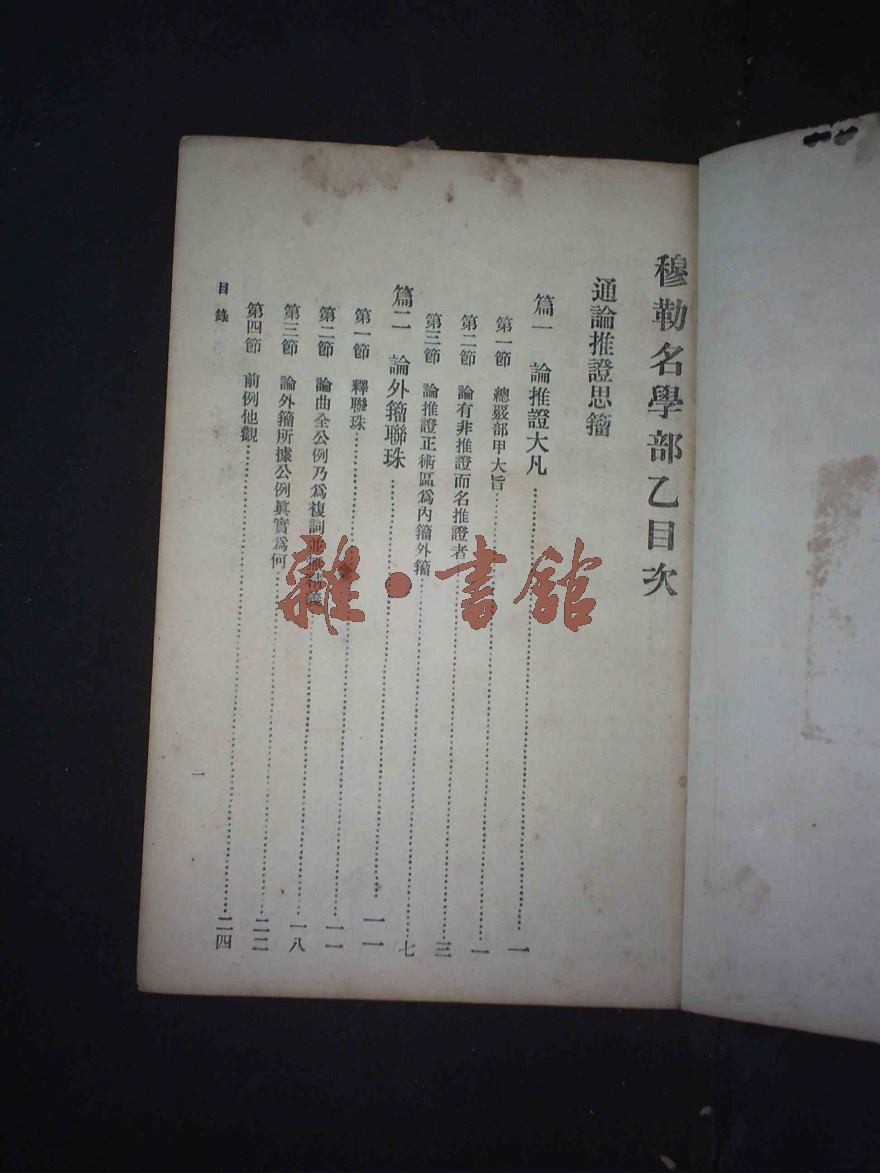 穆勒名學部乙目次
通論推證思籀
篇一 論推證大凡……一
第一節 總覈部甲大旨……一
第二節 論有非推證而名推證者……三
第三節 論推證正術區爲內籀外籀……七
篇二 論外籀聯珠……一一
第一節 釋聯珠……一一
第二節 論曲全公例乃爲複詞……一八
第三節 論外籀所據公例眞實爲何……二二
第四節 前例他觀……二四
目錄
一
雜·書館